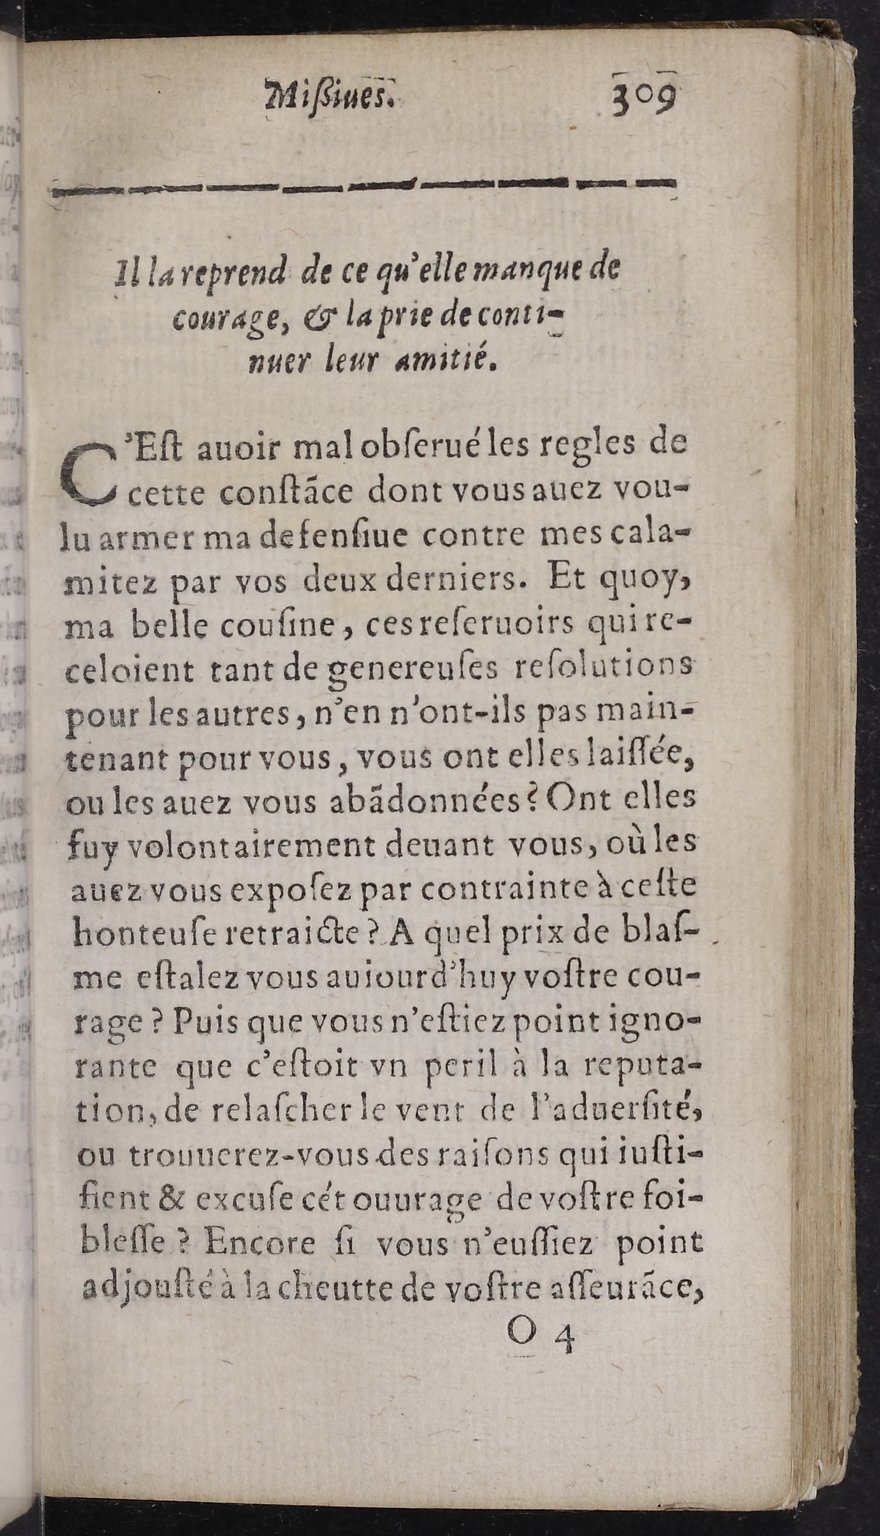 Miſſiues. 309
Il la reprend de ce qu'elle manque de
courage, & la prie de conti-
nuer leur amitié.
C'Eſt auoir mal obſerué les regles de
cette conſtāce dont vous auez vou-
lu armer ma defenſiue contre mes cala-
mitez par vos deux derniers. Et quoy,
ma belle couſine, ces reſeruoirs qui re-
celoient tant de genereuſes reſolutions
pour les autres, n'en n'ont-ils pas main-
tenant pour vous, vous ont elles laiſſée,
ou les auez vous abādonnées? Ont elles
fuy volontairement deuant vous, où les
auez vous expoſez par contrainte à ceſte
honteuſe retraicte? A quel prix de blaſ-
me eſtalez vous auiourd'huy voſtre cou-
rage? Puis que vous n'eſtiez point igno-
rante que c'eſtoit vn peril à la reputa-
tion, de relaſcher le vent de l'aduerſité,
ou trouuerez-vous des raiſons qui iuſti-
fient & excuſe cét ouurage de voſtre foi-
bleſſe? Encore ſi vous n'euſſiez point
adjouſté à la cheutte de voſtre aſſeurāce,
O 4